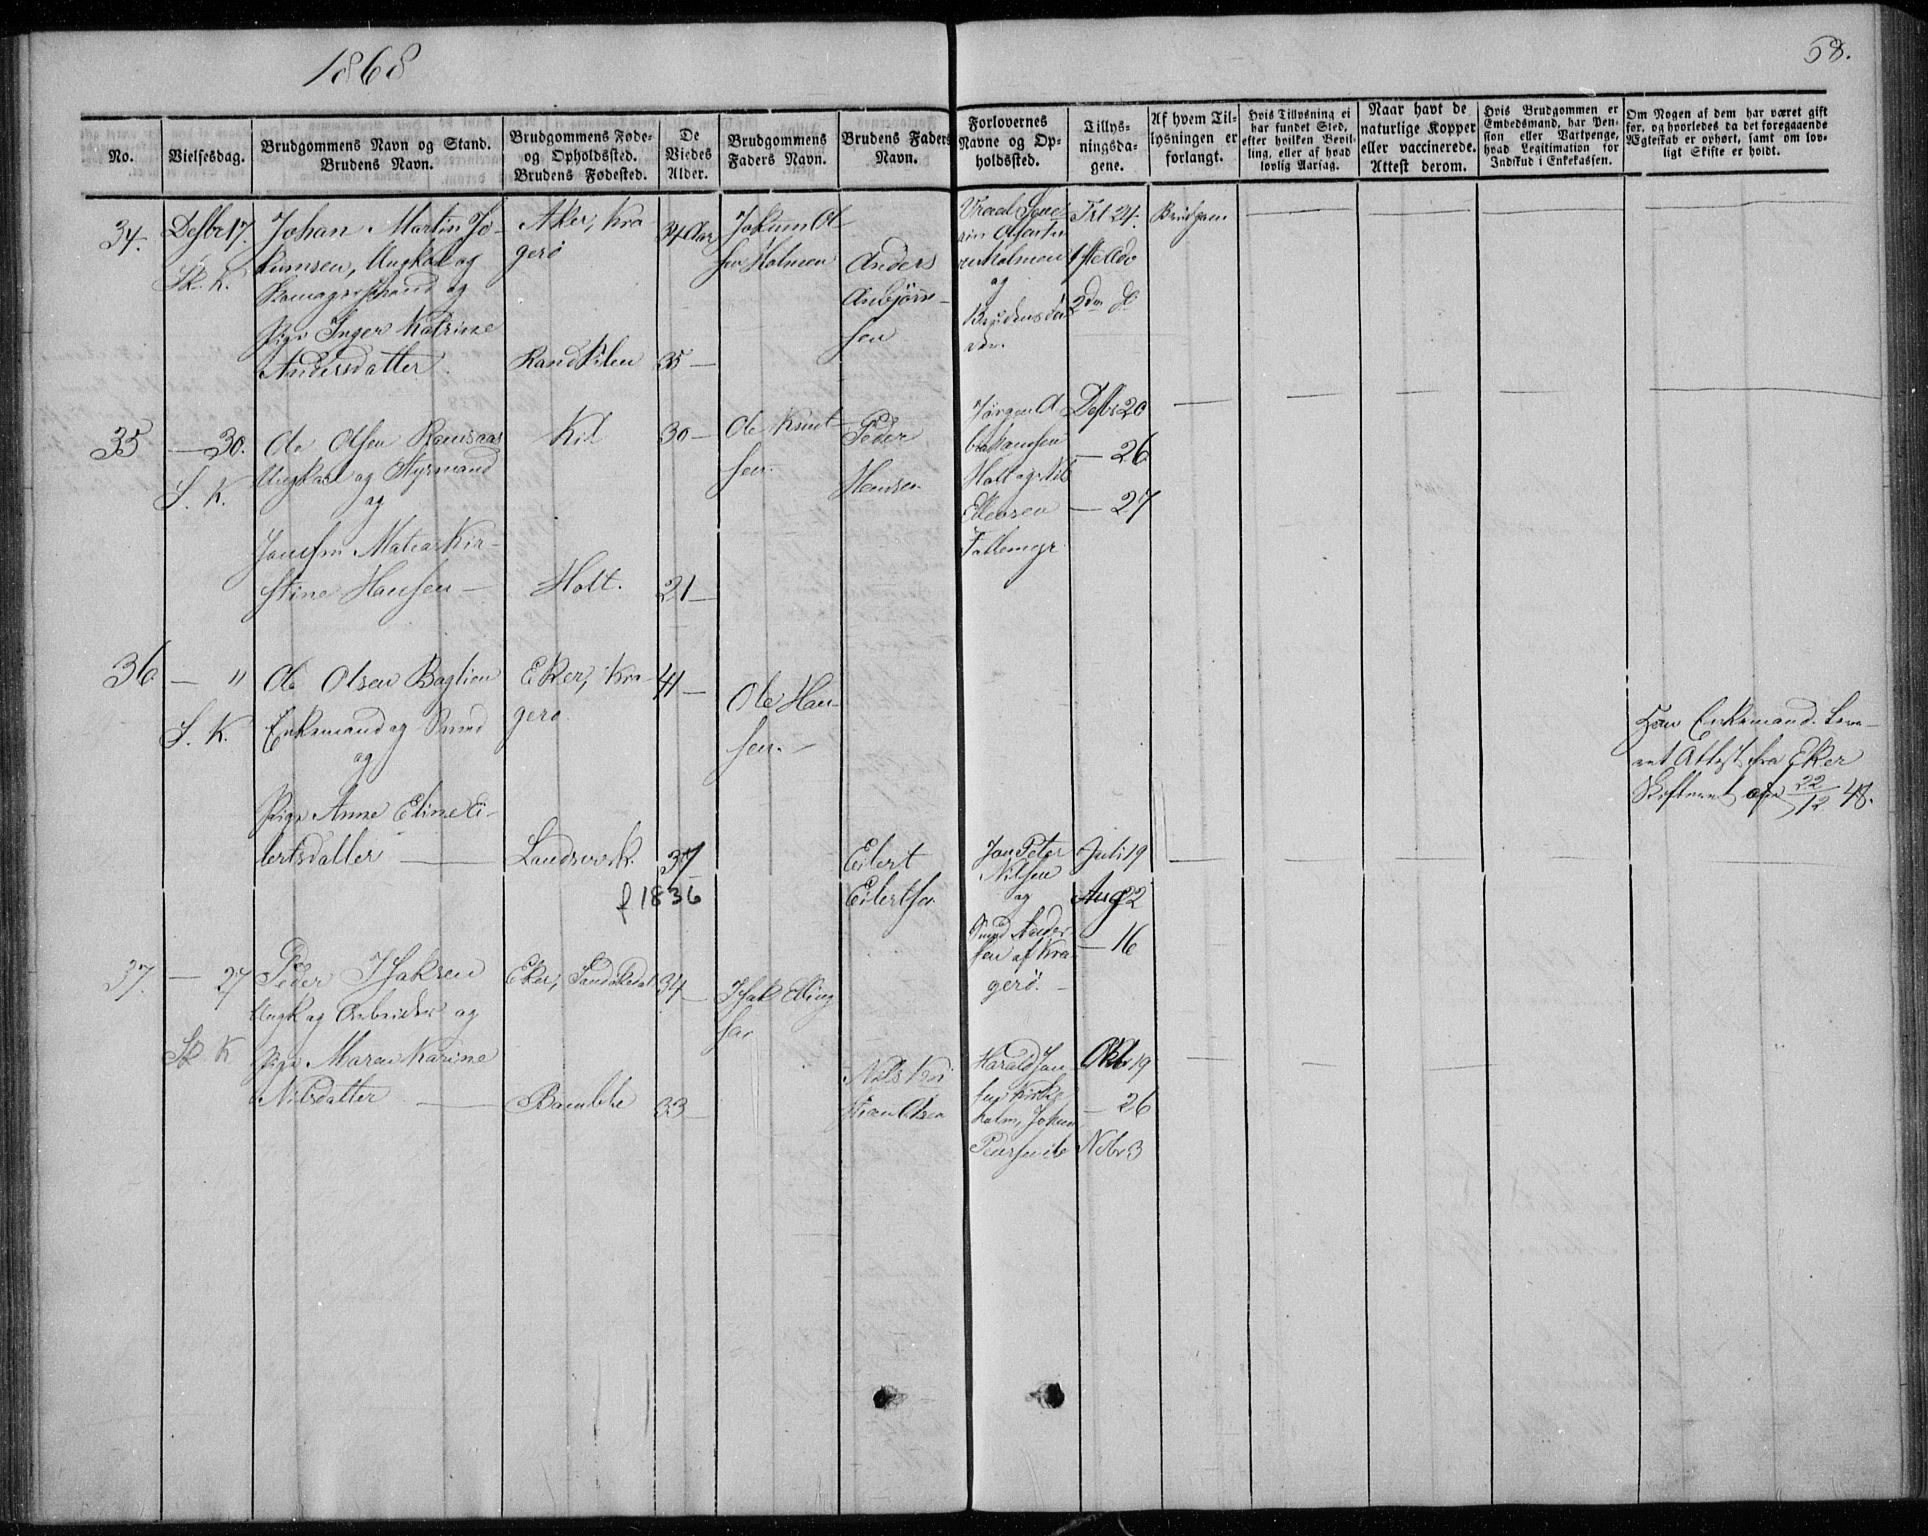 1868
68.
No.
Vielsesdag.
Brudgommens Navn og Stand.
Brudens Navn.
Brudgommens Føde-
og Opholdssted.
Brudens Fødested.
De
Viedes
Alder.
Brudgommens
Faders Navn.
Brudens Faders
Navn.
Forlovernes
Navne og Op-
holdssted.
Tillys-
ningsda-
gene.
Af hvem Til-
lysningen er
forlangt.
Hvis Tillysning ei
har fundet Sted,
efter hvilken Bevil-
ling, eller af hvad
lovlig Aarsag.
Naar havt de
naturlige Kopper
eller vaccinerede.
Attest derom.
Hvis Brudgommen er
Embedsmand, har Pen-
sion eller Vartpenge,
hvad Legitimation for
Indskud i Enkekassen.
Om Nogen af dem har været gift
før, og hvorledes da det foregaaende
Ægteskab er ophørt, samt om lov-
ligt Skifte er holdt.
34.
Desbr 17.
Sk. K.
Johan Martin Jo-
kumsen, Ungkal og
og
Pige Inger Katrine
Andersdatter
Aker, Kra
gerø
Randkilen
34 Aar
35 —
Jokum Ol
sen Holmen
Anders
Anbjørn-
sen
Holmen
og
21.
2den do
Brudgom
35
— 30.
S. K.
Ole Olsen Ramsaas
Ungkal og Styrmand
og
Josefin Matea Kir-
stine Hansen —
Kil
Holt.
30 —
21 —
Ole Knut
sen.
Peder
Hansen
Jørgen A
Holt og Nils
Ellevsen
Desbr 20
— 26
— 27
36
— "
S. K.
Ole Olsen Bagtion
Enkemand og Smed
og
Pige Anne Eline Ei-
lertsdatter —
Eker, Kra-
gerø
Landsverk.
41 —
37
f 1836
Ole Han-
sen. —
Eilert
Eilertsen
Jan Peter
Nilsen
og
Smed Ander
sen af Kra
gerø. —
Juli 19
Aug 22
— 16
Enkemand.
Attest fra Eker
Skifteret 22/12 48.
37.
— 27
Sk K
Peder Isaksen
Ungk og Arbeider og
Pige Maren Karine
Nilsdatter —
Eker, Sandøkedal
Bamble
34 —
33 —
Isak Elling
sen
Nils Kri
stian Olsen
Harald Jan
sen Kirke
holm, Johan
Okbr 19
— 26
Nobr 3